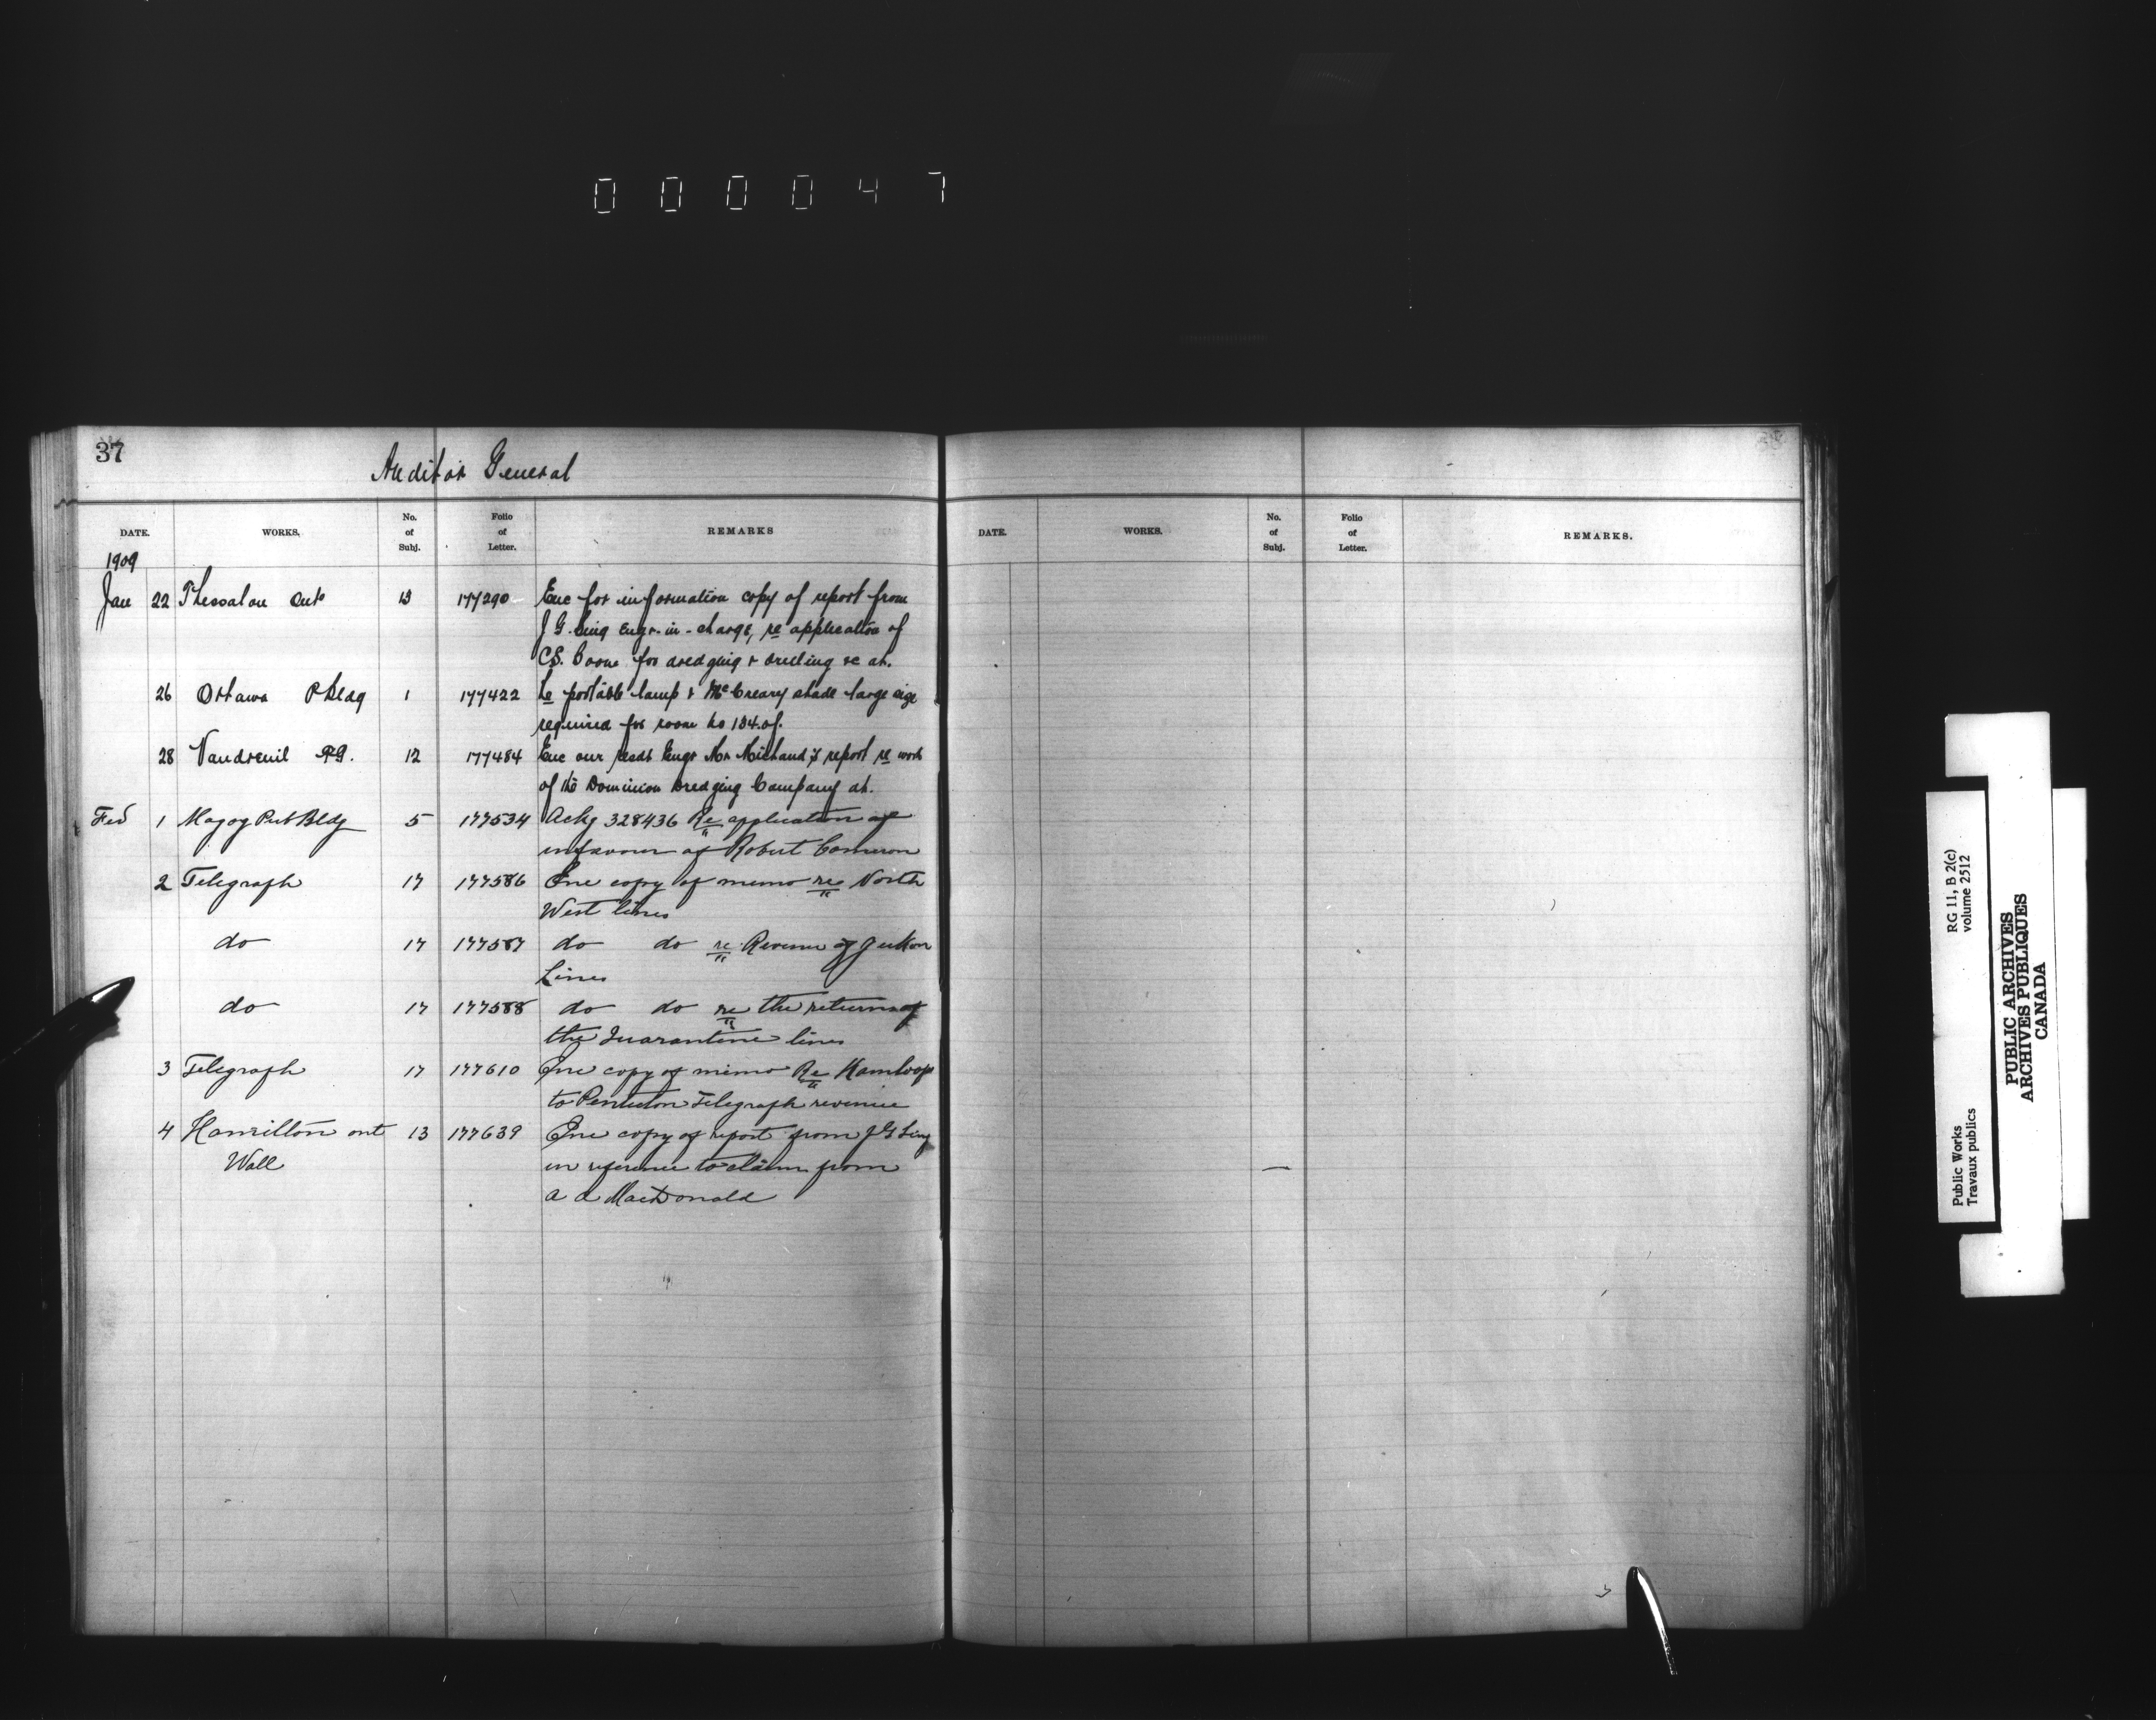 000047
37
Auditor General
DATE. WORKS. No. of Subj. Folio of Letter. REMARKS
1909
Jan 22 Thessalon Ont 13 177290 Enc for information copy of report from
J G. Sing Engr-in-charge, re application of
C.S. Boone for dredging & drilling &c at.
26 Ottawa P Bldg 1 177422 Re portable lamp & McCreary shade large size
required for room no 134. of.
28 Vaudreuil P.Q. 12 177484 Enc our resdt Engr Mr Michaud's report re work
of the Dominion Dredging Company at.
Feb 1 Magog Pub Bldg 5 177534 Ackg 328436 Re application of
in favour of Robert Cameron
2 Telegraph 17 177586 Enc copy of memo re North
West lines
do 17 177587 do do re Revenue of Yukon
Lines
do 17 177588 do do re the returns of
the Quarantine lines
3 Telegraph 17 177610 Enc copy of memo Re Kamloops
to Penticton Telegraph revenue
4 Hamilton ont 13 177639 Enc copy of report from J G Sing
Wall in reference to claim from
a a MacDonald
38
DATE. WORKS. No. of Subj. Folio of Letter. REMARKS.
Public Works
Travaux publics
RG 11, B 2(c)
volume 2512
PUBLIC ARCHIVES
ARCHIVES PUBLIQUES
CANADA